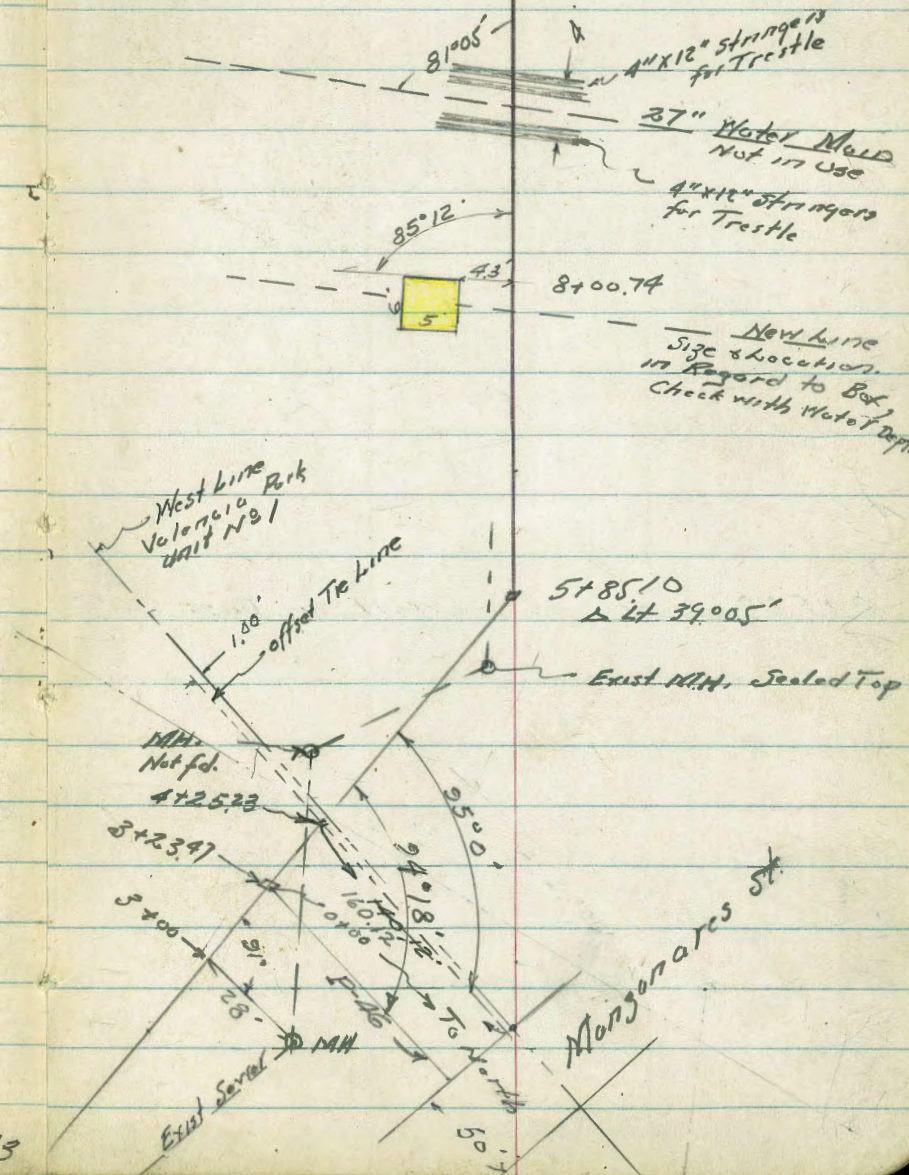 81°05'
4"x12" Stringers
for Trestle
27" Water Main
Not in Use
4"x12" Stringers
for Trestle
85°12'
4.3'
8+00.74
6'
5
New Line
Size & Location
in Regard to Box,
Check with Water Dept.
West Line
Valencia Park
Unit No 1
1.00'
offset Tie Line
5+85.10
Δ Lt 39°05'
Exist M.H. Sealed Top
MH.
Not fd.
4+25.23
3+23.47
3+00
95°0'
94°18'
160.12
0+00
91°
28'
P-46
To North
MH
Exist Sewer
Manganares St.
50'